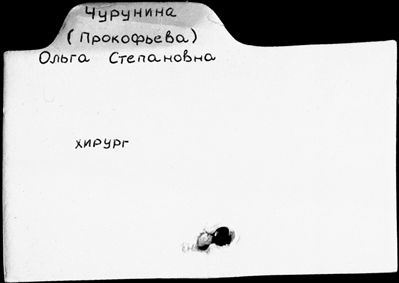 Чурунина
(Прокофьева)
Ольга Степановна
хирург